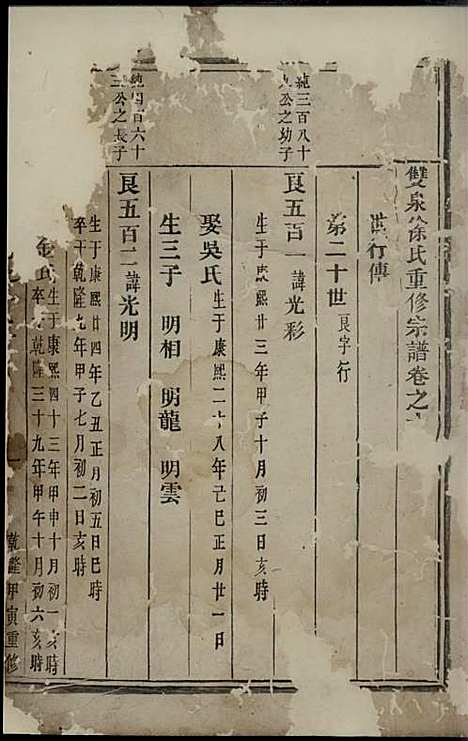 雙泉徐氏重修宗譜卷之
行傳
第二十世良字行
純三百八十
公之幼子
良五百一諱光彩
生于康熙廿三年甲子十月初三日亥時
娶吳氏生于康熙二十八年己巳正月廿一日
生三子 明相 明龍 明雲
純四百六十
公之長子
良五百二諱光明
生于康熙廿四年乙丑正月初五日巳時
卒于乾隆九年甲子七月初二日亥時
氏生于康熙四十三年甲申十月初一亥時
卒于乾隆三十九年甲午十月初六亥時
乾隆甲寅重修